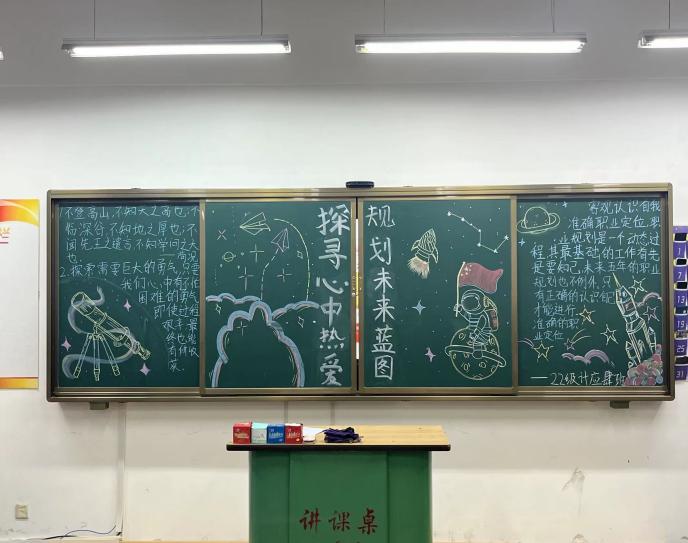 1.不登高山,不知天之高也,不
临深谷,不知地之厚也;不
闻先王之遗言,不知学问之大
也
2.探索需要巨大的勇气,只要
我们心中有不
困难的勇气
即使过程
艰辛最
终也能
有所收
探寻心中热爱
规划未来蓝图
客观认识自我
准确职业定位,职
业规划是一个动态过
程,其最基础的工作首先
是要知己,未来五年的职业
规划也不例外,只
有正确的认识自
才能进行
准确的职
业定位。
——22级计应肆班
讲课桌